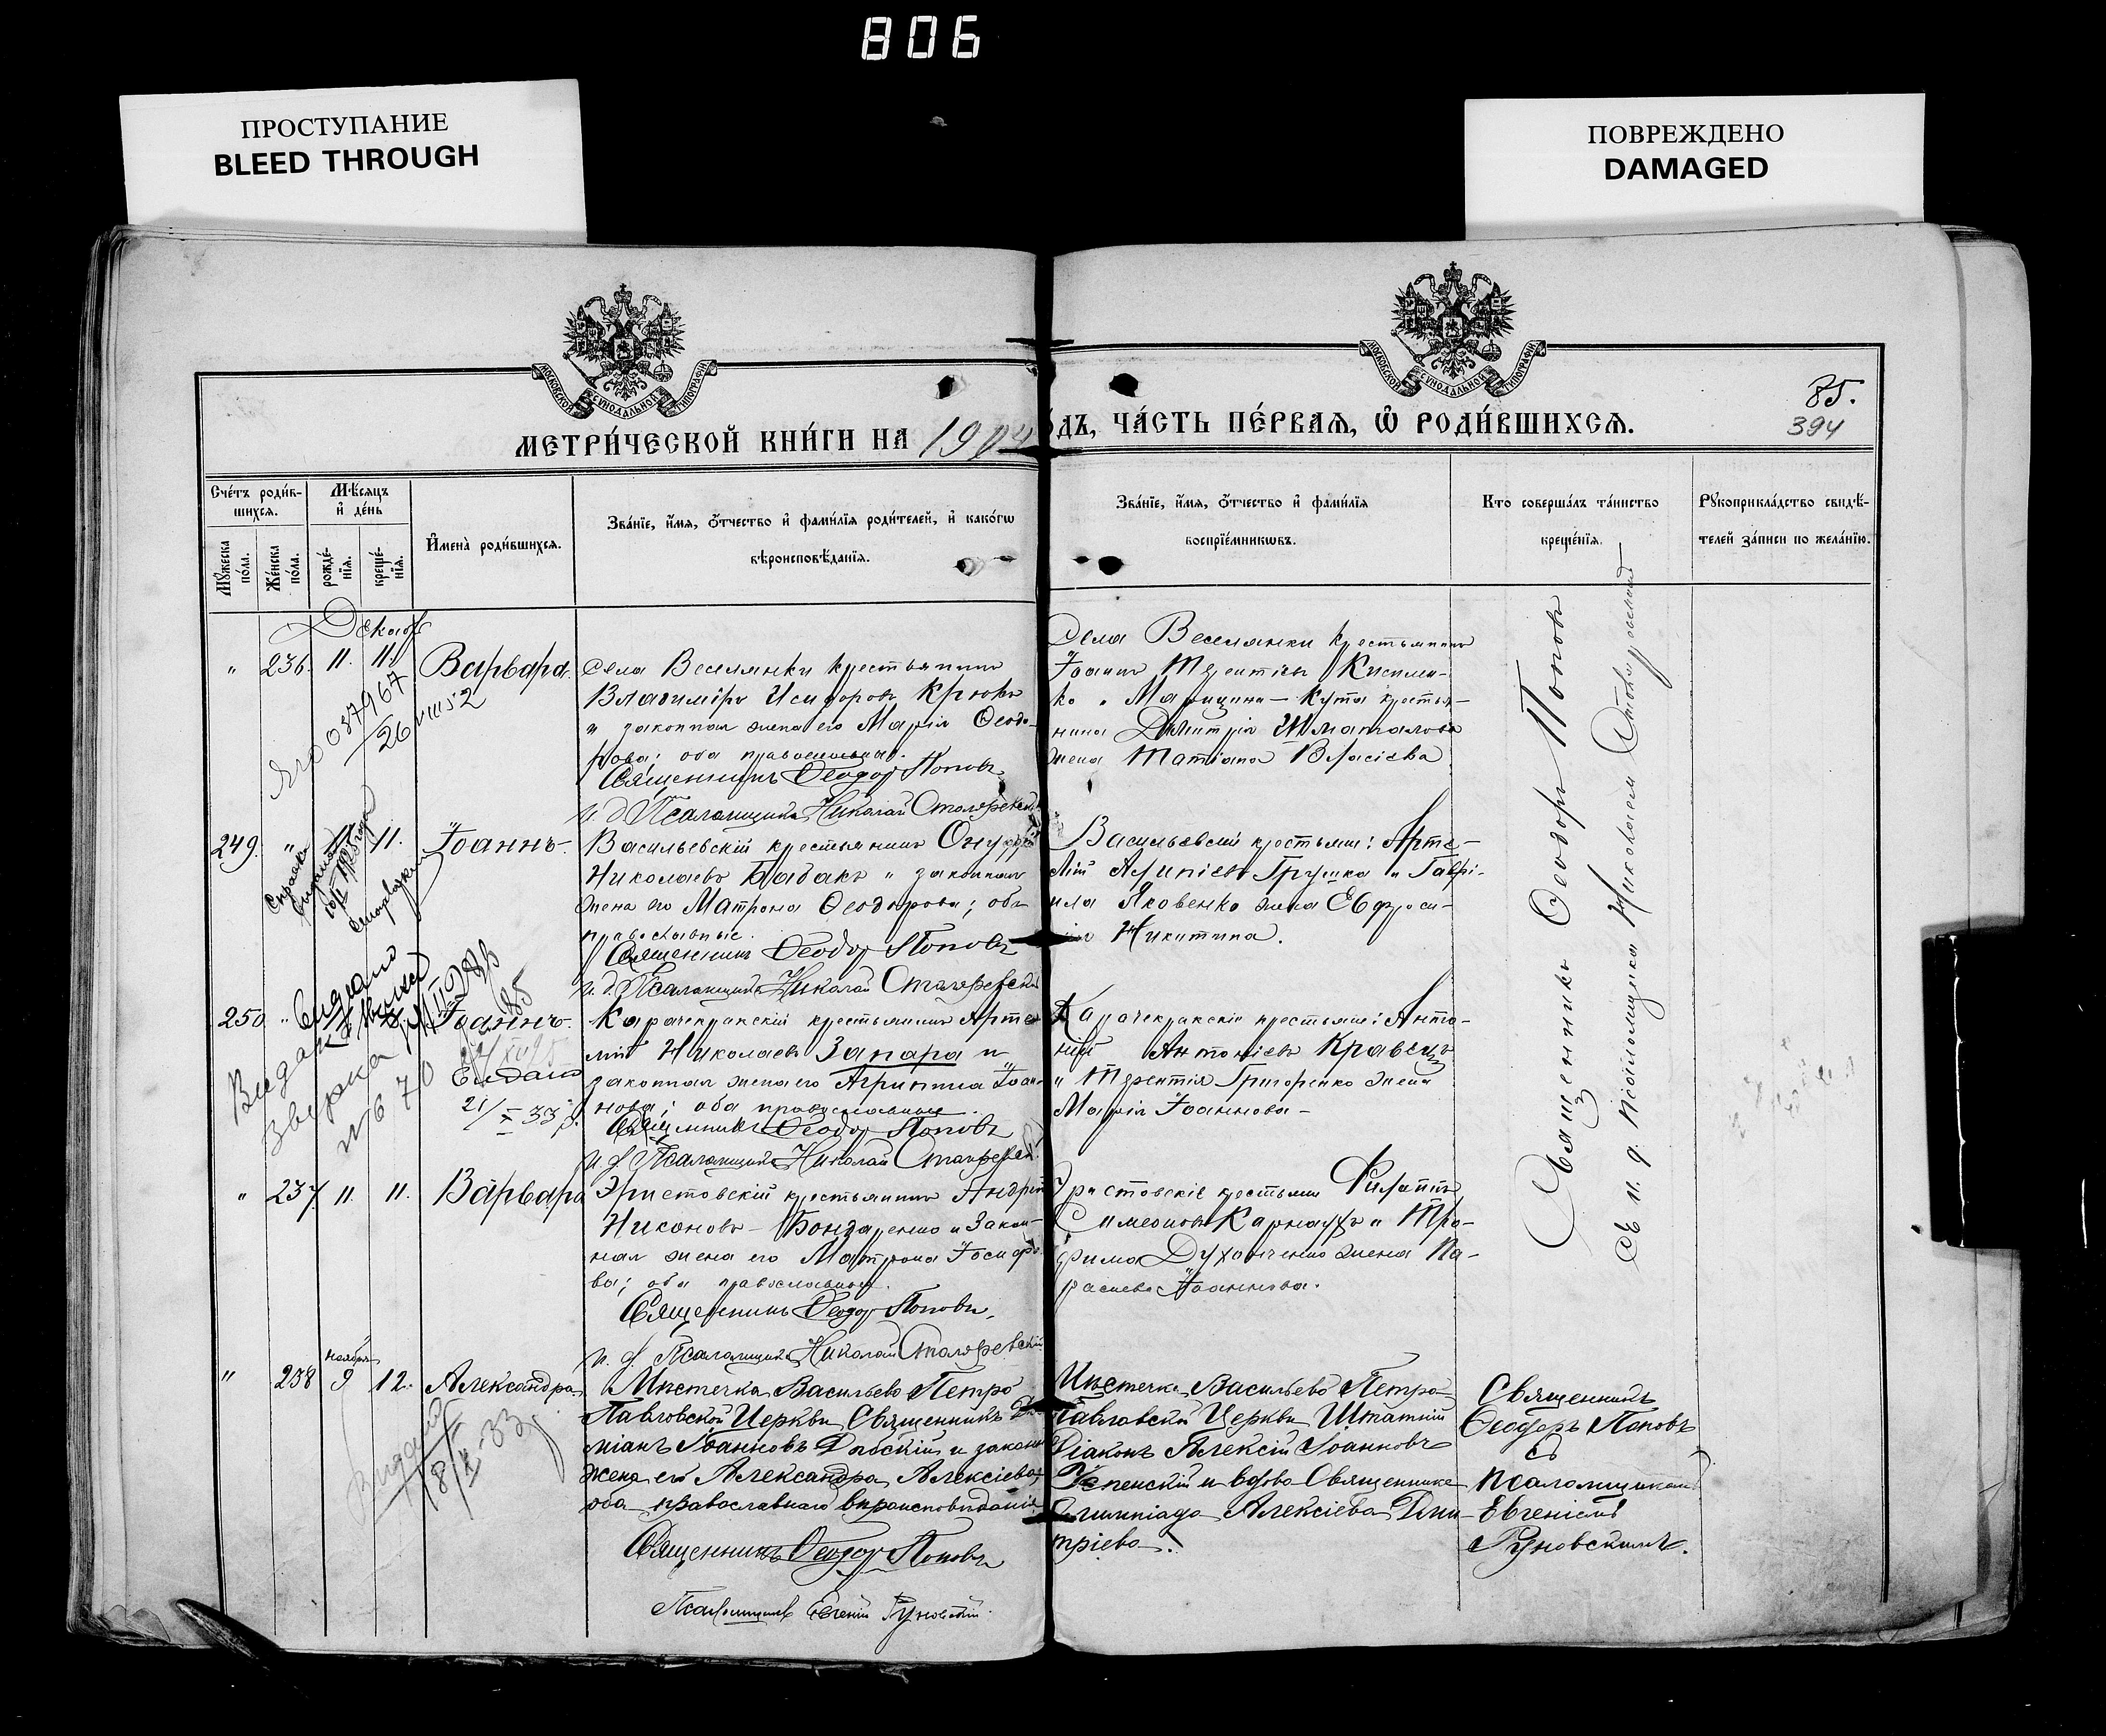 806
ПРОСТУПАНИЕ
BLEED THROUGH
ПОВРЕЖДЕНО
DAMAGED
МОСКОВСКОЙ СѴНОДАЛЬНОЙ ТИПОГРАФІИ
МОСКОВСКОЙ СѴНОДАЛЬНОЙ ТИПОГРАФІИ
85.
394
МЕТРИ́ЧЕСКОЙ КНИ́ГИ НА 1904
ДЪ, ЧА́СТЬ ПЕ́РВАѦ, Ѿ РОДИ́ВШИХСѦ.
Сче́тъ роди́в-
шихсѧ.
Мѣ́сѧцъ
и҆ де́нь
Мꙋ́жеска
по́ла.
Же́нска
по́ла.
рожде́-
нїѧ.
креще́-
нїѧ.
И҆мена̀ роди́вшихсѧ.
Зва́нїе, и҆́мѧ, ѻ҆́тчество и҆ фами́лїѧ роди́телей, и҆ како́гѡ
вѣроисповѣ́данїѧ.
Зва́нїе, и҆́мѧ, ѻ҆́тчество и҆ фами́лїѧ
воспрїе́мникѡвъ.
Кто̀ соверша́лъ та́инство
креще́нїѧ.
Рꙋкоприкла́дство свидѣ́-
телей за́писи по жела́нїю.
Декабр
" 236. 11. 11. Варвара.
Села Веселянки крестьянинъ
Владиміръ Исидоровъ Крюковъ
и законная жена его Марія Ѳеодо-
рова; оба православные.
Священникъ Ѳеодоръ Поповъ
и. д. Псаломщика Николай
Села Веселянки крестьянинъ
Іоаннъ Терентіевъ Кисилен-
ко и Марицина-Кута крестья-
нина Димитрія Шматалова
жена Татіана Власіева
087967
26 VIII 52
249. " 11. Іоаннъ.
Справка
выдана
Васильевскій крестьянинъ Онуфрій
Николаевъ Бабакъ и законная
жена его Матрона Ѳеодорова; оба
православные.
Священникъ Ѳеодоръ Поповъ
и. д. Псаломщика Николай
Васильевскій крестьяне: Арте-
мій Грушка и Гаврі-
ила Яковенко жена Евфроси-
нія Никитина.
250 " Іоаннъ.
Видано
21/X 33 р.
Карачекракскій крестьянинъ Арте-
мій Николаевъ Запара и
законная жена его Агриппина Іоан-
нова; оба православные.
Священникъ Ѳеодоръ Поповъ
и. д. Псаломщика Николай
Карачекракскіе крестьяне: Анто-
ній Антоніевъ Кравецъ
и Терентія Григоренко жена
Марія Іоаннова-
" 237. 11. 11. Варвара
Эристовскій крестьянинъ Андрей
Никоновъ Бондаренко и закон-
ная жена его Матрона Іосифо-
ва; оба православные.
Священникъ Ѳеодоръ Поповъ.
и. д. Псаломщика Николай
Эристовскіе крестьяне Филиппъ
Симеоновъ Карнаухъ и Тро-
фима Духанченко жена Па-
раскева Іоаннова.
ноября
" 238 9 12. Александра
Видано
18/X-33 р.
Мѣстечка Васильево Петро-
Павловской Церкви Священникъ
міанъ Іоанновъ и закон
жена его Александра Алексіева
оба православнаго вѣроисповѣданія
Священникъ Ѳеодоръ Поповъ
Псаломщикъ Евгеній Руновскій.
Мѣстечка Васильево Петро-
Павловской Церкви Штатный
Діаконъ Алексій Іоанновъ
Успенскій и вдова Священника
Олимпіада Алексіева Дми-
тріева.
Священникъ
Ѳеодоръ Поповъ
съ
псаломщикомъ
Евгеніемъ
Руновскимъ.
Священникъ Ѳеодоръ Поповъ
съ и. д. Псаломщика Николаемъ